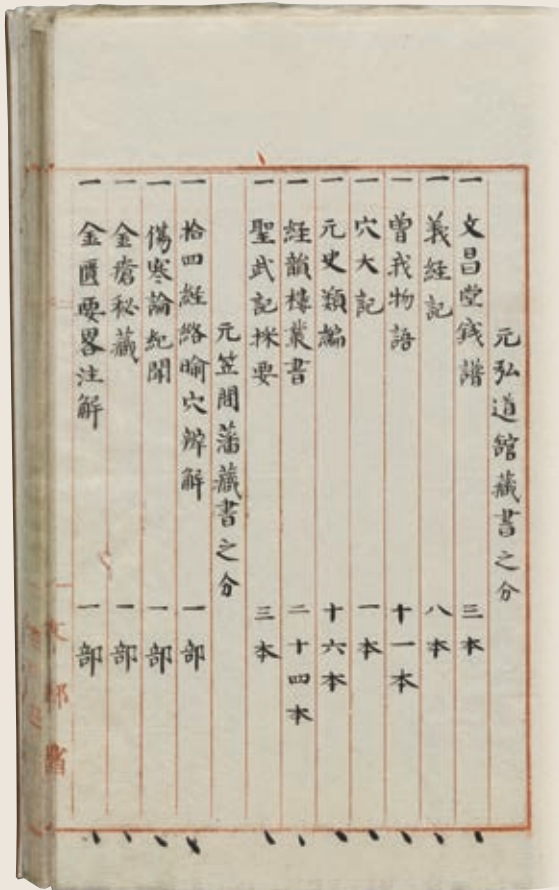 元弘道館藏書之分
一 文昌堂錢譜 三本
一 義経記 八本
一 曽我物語 十一本
一 穴太記 一本
一 元史類編 十六本
一 経韻樓叢書 二十四本
一 聖武記採要 三本
元笠間藩藏書之分
一 拾四経絡喻穴辨解 一部
一 傷寒論紀聞 一部
一 金瘡秘藏 一部
一 金匱要畧注解 一部
文部省